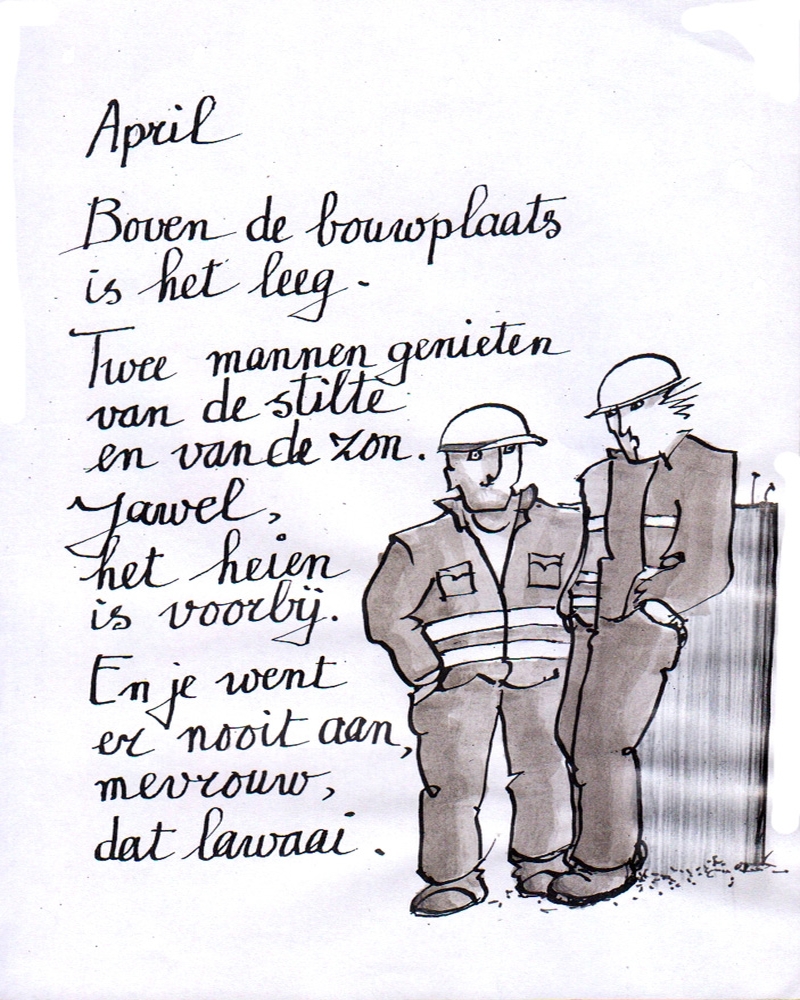 April
Boven de bouwplaats
is het leeg.
Twee mannen genieten
van de stilte
en van de zon.
Jawel,
het heien
is voorbij.
En je went
er nooit aan,
mevrouw,
dat lawaai.